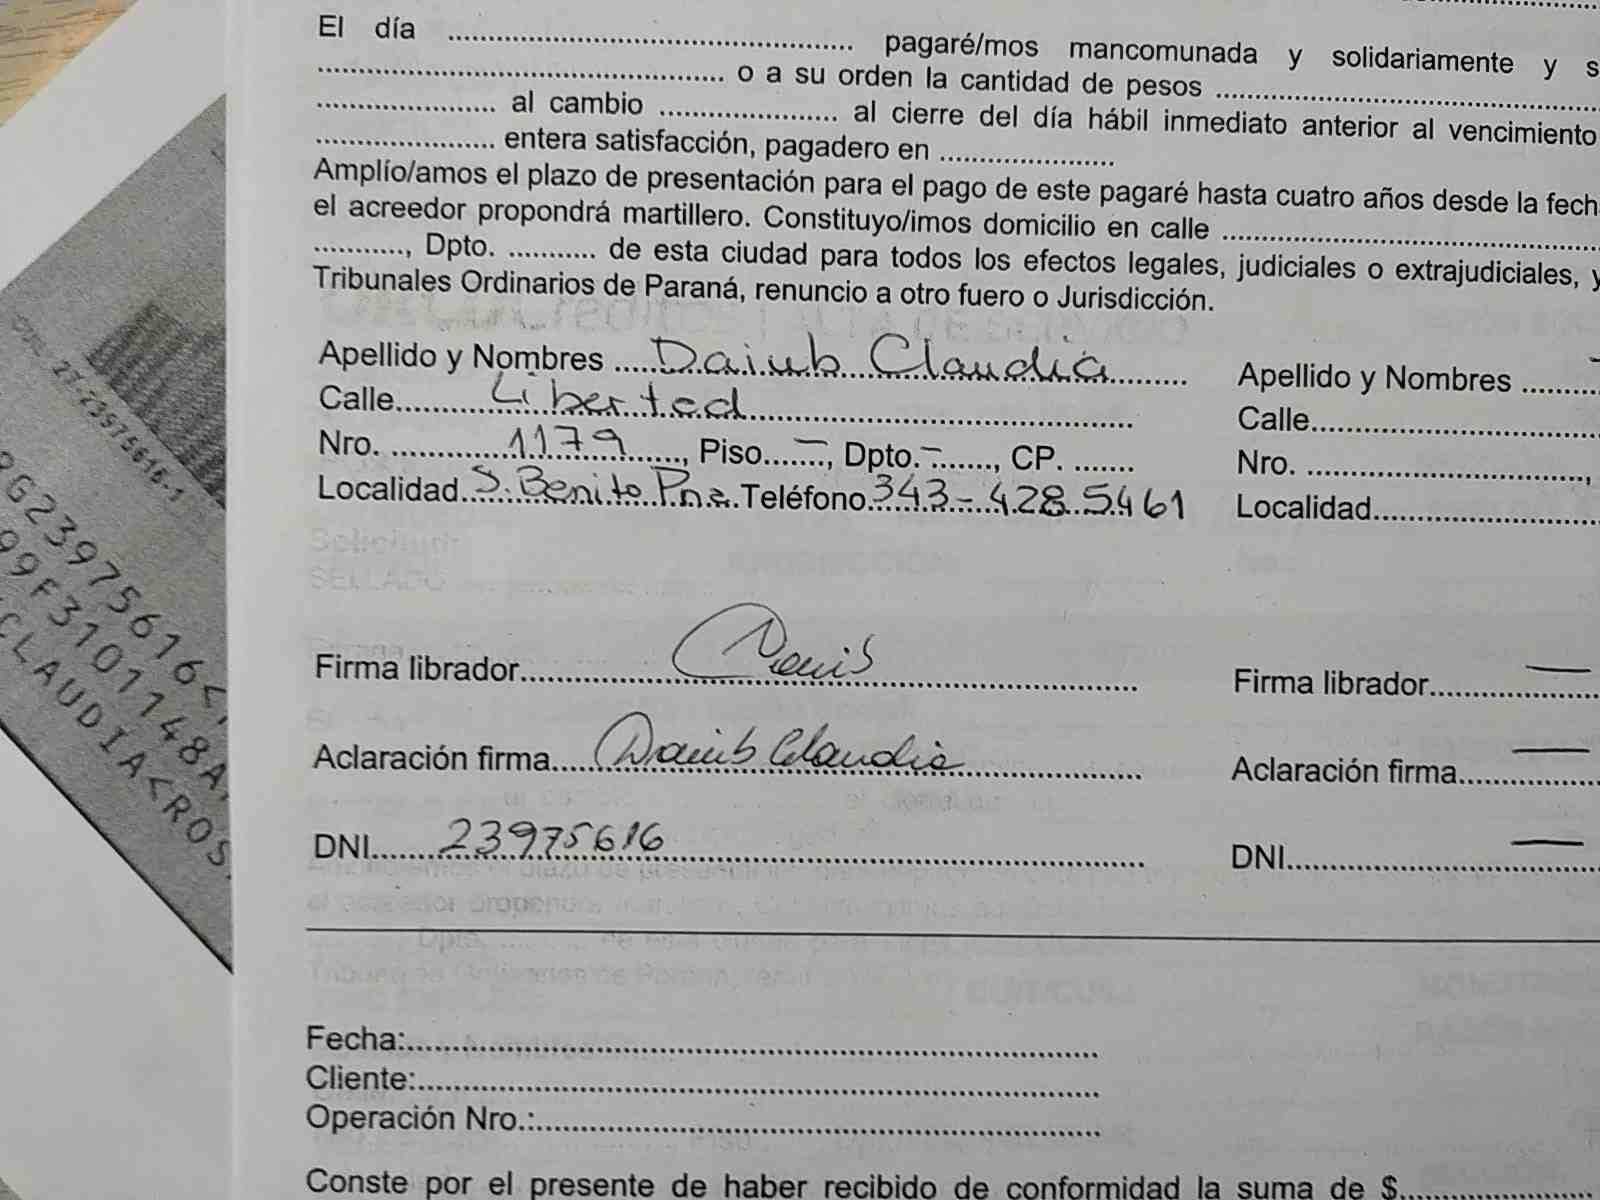 El día .................... pagaré/mos mancomunada y solidariamente y s
.................... o a su orden la cantidad de pesos ....................
.................... al cambio .................... al cierre del día hábil inmediato anterior al vencimiento
.................... entera satisfacción, pagadero en ....................
Amplío/amos el plazo de presentación para el pago de este pagaré hasta cuatro años desde la fech
el acreedor propondrá martillero. Constituyo/imos domicilio en calle ....................
..........., Dpto. ........... de esta ciudad para todos los efectos legales, judiciales o extrajudiciales, y
Tribunales Ordinarios de Paraná, renuncio a otro fuero o Jurisdicción.
Apellido y Nombres ..... Daiub Claudia ..........
Calle.......... Libertad ....................
Nro. .......... 1179 ......, Piso...–..., Dpto.–......, CP. .......
Localidad.. S. Benito Pna. Teléfono. 343-4285461
Firma librador....................
Aclaración firma..... Daiub Claudia ....................
DNI....... 23975616 ....................
Apellido y Nombres ..........
Calle....................
Nro. ....................,
Localidad....................
Firma librador.......... —
Aclaración firma.......... —
DNI.................... —
Fecha:....................
Cliente:....................
Operación Nro.:....................
Conste por el presente de haber recibido de conformidad la suma de $..........
27-23975616-1
RG23975616<
99F3101148A
CLAUDIA<ROS